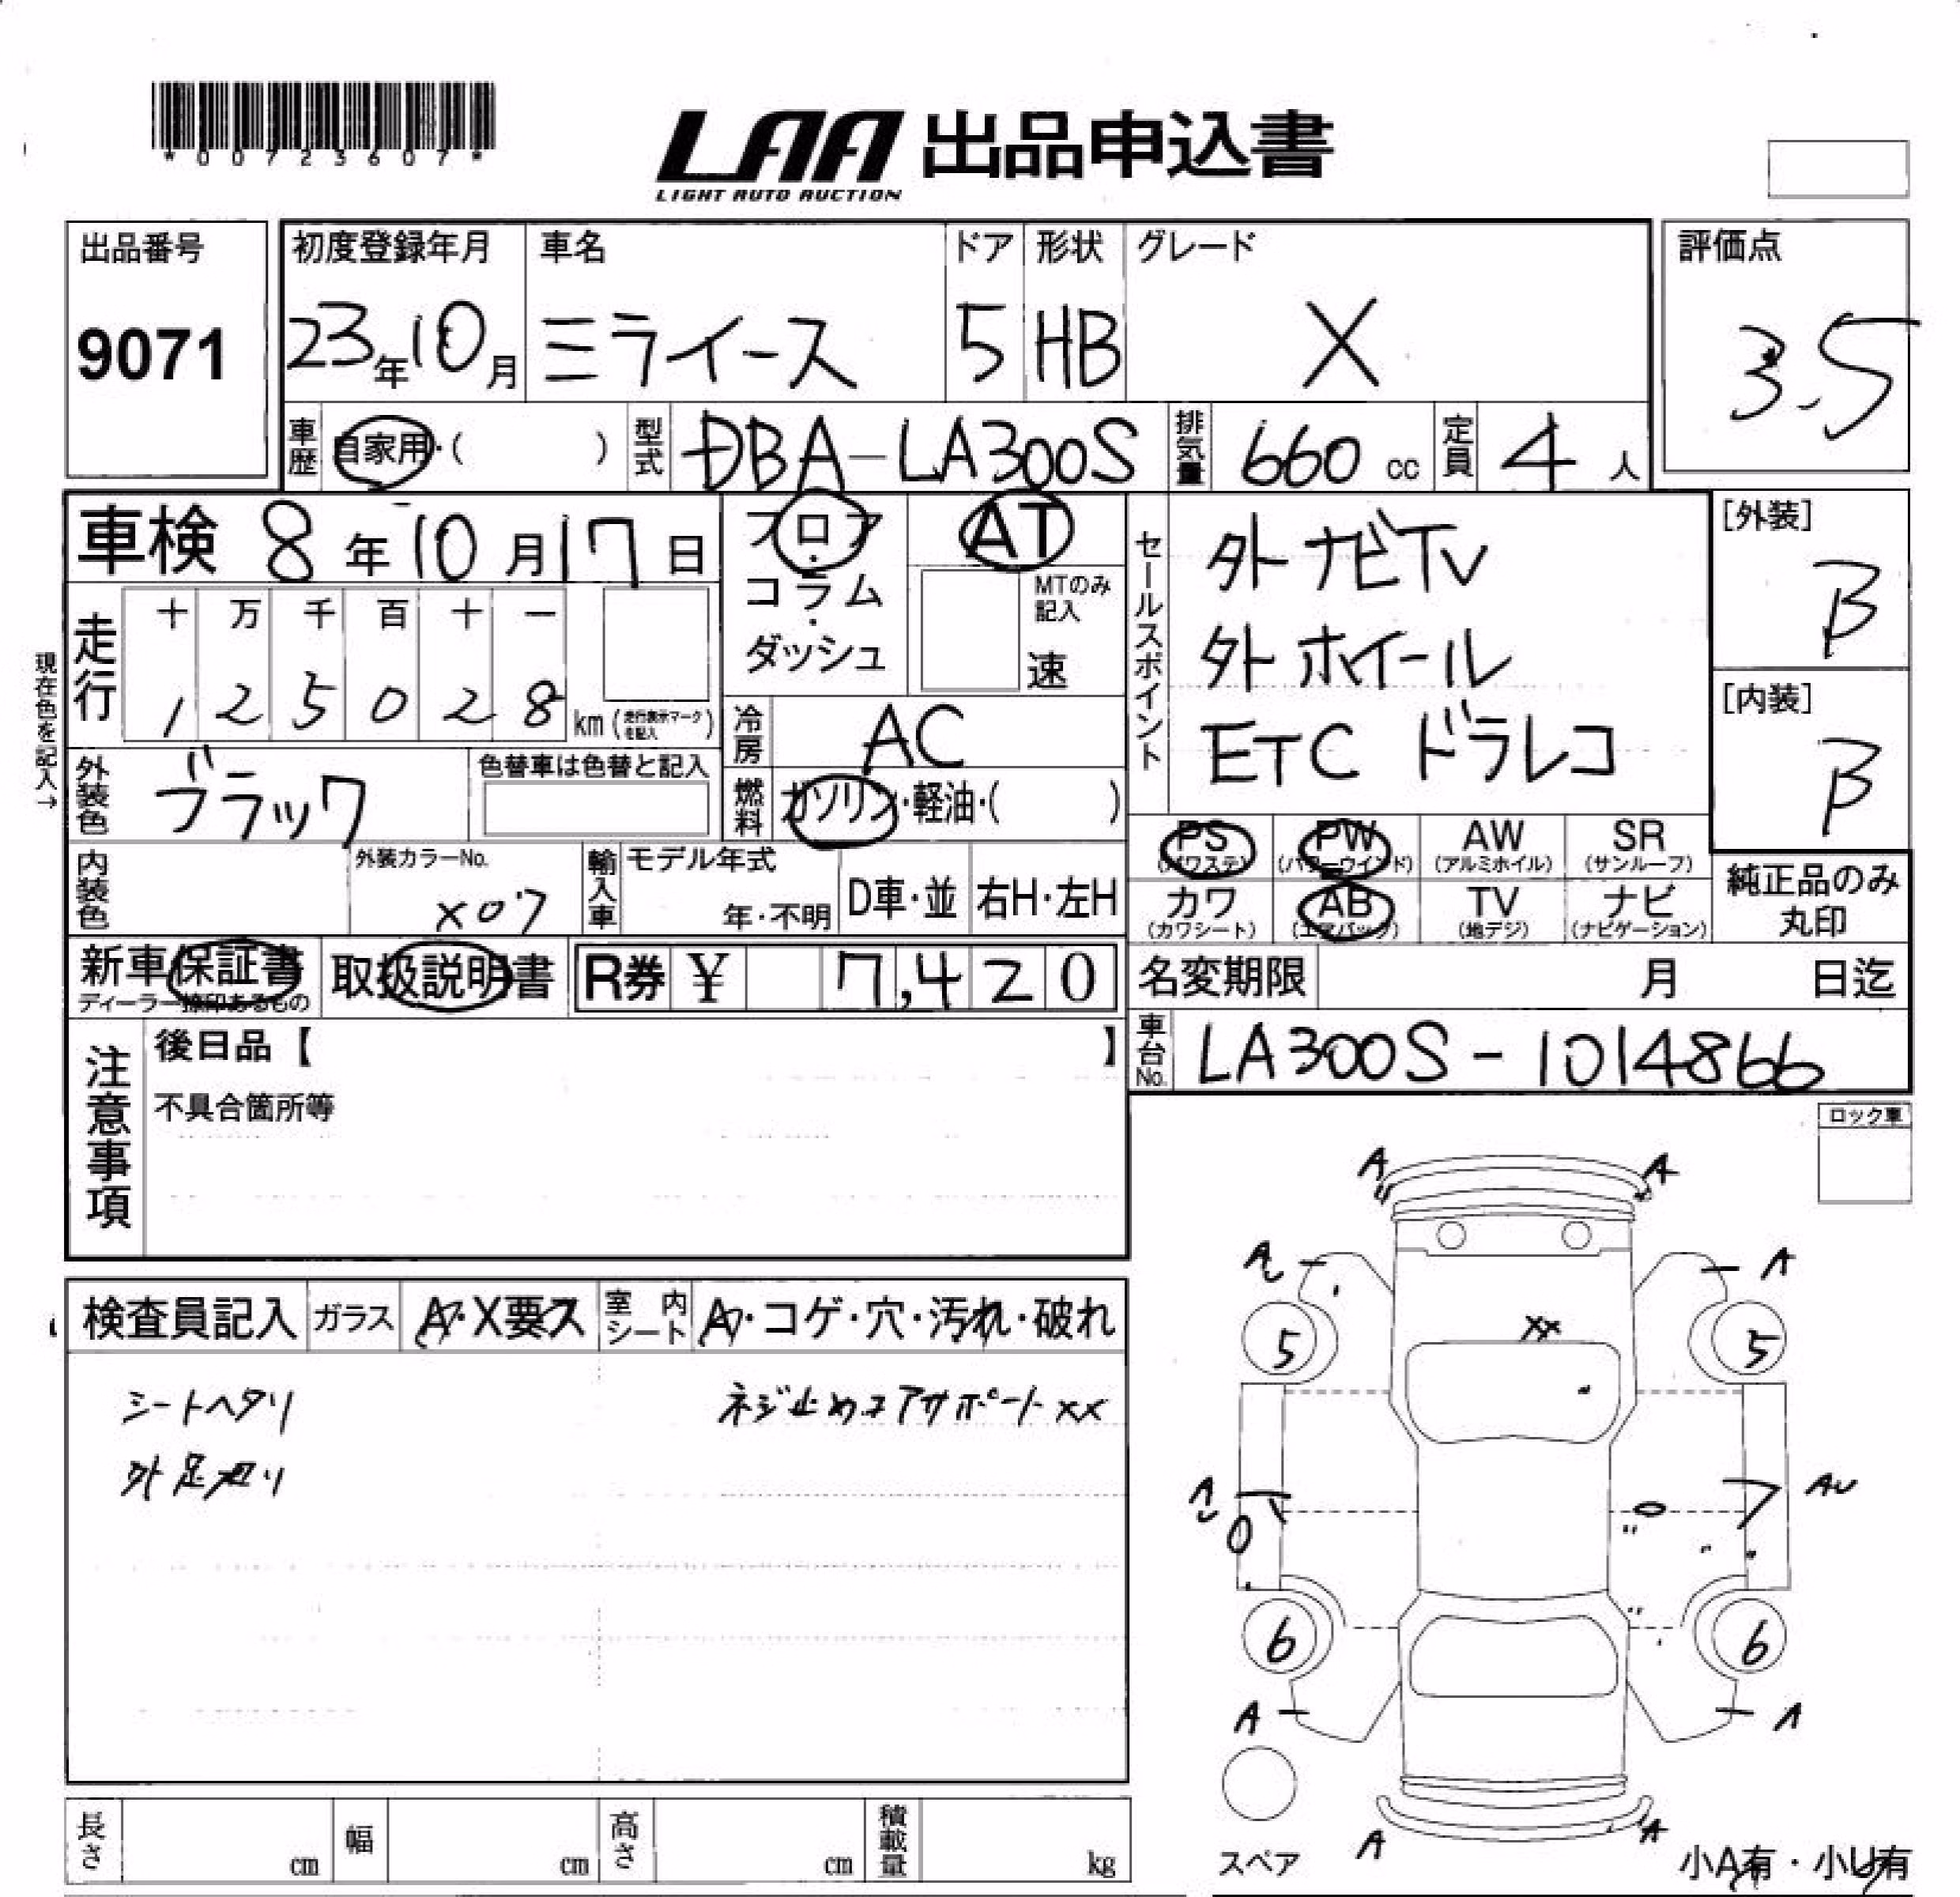 *00723607*
LAA 出品申込書
LIGHT AUTO AUCTION
出品番号
9071
初度登録年月
23年10月
車名
ミライース
ドア
5
形状
HB
グレード
X
評価点
3.5
車歴
自家用・( )
型式
DBA-LA300S
排気量
660 cc
定員
4 人
車検 8年10月17日
現在色を記入→
走行
十 万 千 百 十 一
1 2 5 0 2 8 km (走行表示マークを記入)
フロア・コラム・ダッシュ
AT
MTのみ記入
速
冷房
AC
燃料
ガソリン・軽油・( )
セールスポイント
外ナビTV
外ホイール
ETC ドラレコ
[外装]
B
[内装]
B
外装色
ブラック
色替車は色替と記入
内装色
外装カラーNo.
X07
輸入車
モデル年式
年・不明
D車・並
右H・左H
PS (パワステ)
PW (パワーウインド)
AW (アルミホイル)
SR (サンルーフ)
カワ (カワシート)
AB (エアバック)
TV (地デジ)
ナビ (ナビゲーション)
純正品のみ
丸印
新車保証書
ディーラー捺印あるもの
取扱説明書
R券 ¥ 7,420
名変期限 月 日迄
車台No.
LA300S-1014866
注意事項
後日品【 】
不具合箇所等
ロック車
検査員記入
ガラス
A・X要ス
室内シート
A・コゲ・穴・汚れ・破れ
シートヘタリ
ネジ止めコアサポートXX
A A
A A
XX
5 5
AU
6 6
A A
A A
スペア
小A有・小U有
長さ cm
幅 cm
高さ cm
積載量 kg